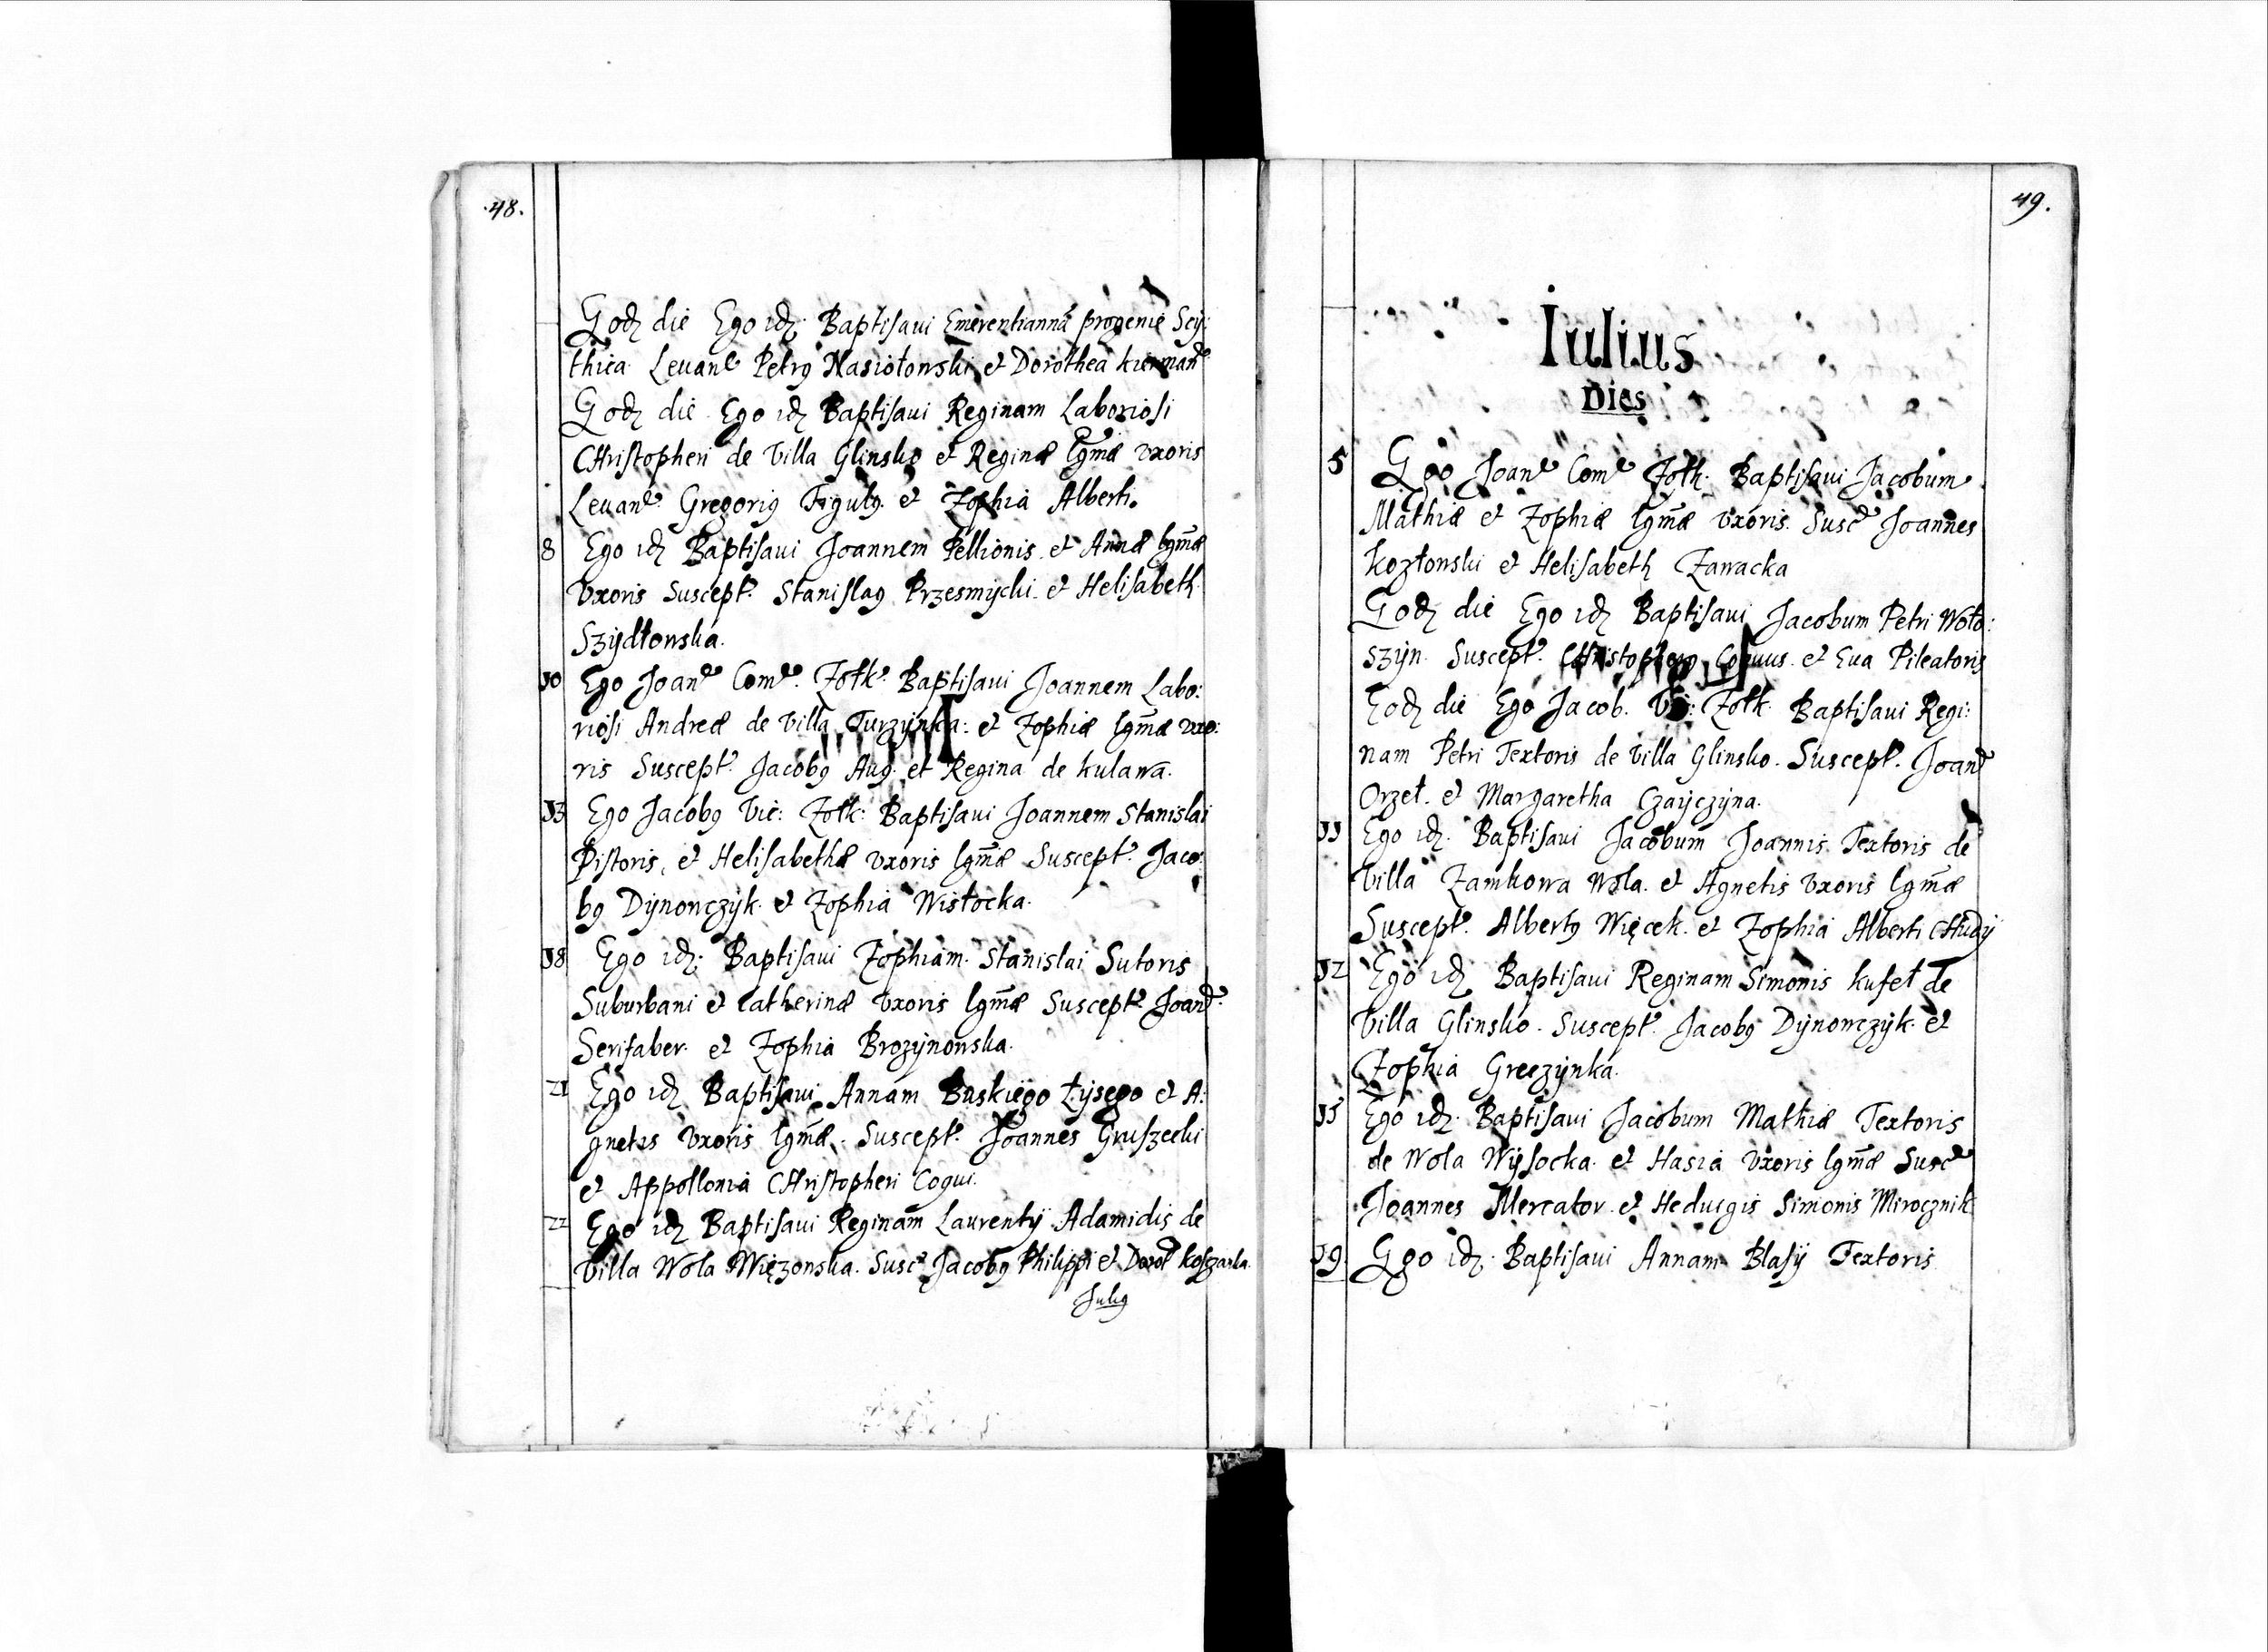 .48.
Eodꝫ die Ego idꝫ Baptisaui Emerentiannã progenie Scÿ:
thica Leuanᵉ Petrꝰ Nasiołowski et Dorothea
Eodꝫ die Ego idꝫ Baptisaui Reginam Laboriosi
CHristopheri de Villa Glinsko et Reginæ lgm̃æ vxoris
Leuanᵉ Gregoriꝰ Figulꝰ et Zophia Alberti.
8 Ego idꝫ Baptisaui Joannem Pellionis et Annæ lgm̃æ
Vxoris Suscept: Stanislaꝰ Przesmÿcki et Helisabeth
Szÿdłowska.
10 Ego Joanᵉ Comᵉ Zołk: Baptisaui Joannem Labo:
riosi Andreæ de Villa Turzÿnka: et Zophiæ lgm̃æ vxo:
ris Suscept: Jacobꝰ Aug: et Regina de Kulawa.
13 Ego Jacobꝰ Vic: Zołk: Baptisaui Joannem Stanislai
Pistoris, et Helisabethæ vxoris lgm̃æ Suscept: Jaco:
bꝰ Dÿnowczÿk et Zophia Wisłocka.
18 Ego idꝫ Baptisaui Zophiam Stanislai Sutoris
Suburbani et Catherinæ Vxoris lgm̃æ Suscept: Joanᵉ
Serifaber et Zophia Brozÿnowska.
21 Ego idꝫ Baptisaui Annam Baskiego Łÿsego et A:
gnetis Vxoris lgm̃æ. Suscept: Joannes Gruszecki
et Appollonia CHristopheri Coqui.
22 Ego idꝫ Baptisaui Reginam Laurentÿ Adamidis de
Villa Wola Więzowska. Suscᵉ Jacobꝰ Philippi et Dorot
Juliꝰ
49.
Iulius
Dies
5 Ego Joanᵉ Comᵉ Zołk: Baptisaui Jacobum
Mathiæ et Zophiæ lgm̃æ vxoris. Suscᵉ Joannes
Kozłowski et Helisabeth Zawacka
Eodꝫ die Ego idꝫ Baptisaui Jacobum Petri Woło:
szÿn Suscept: et Eua Pileatoris
Eodꝫ die Ego Jacob. Vic: Zołk: Baptisaui Regi:
nam Petri Textoris de Villa Glinsko. Suscept. Joanᵉ
Orzeł et Margaretha Czaÿczÿna.
11 Ego idꝫ Baptisaui Jacobum Joannis Textoris de
Villa Zamkowa Wola et Agnetis Vxoris lgm̃æ
Suscept: Albertꝰ Więcek et Zophia Alberti CHudÿ
12 Ego idꝫ Baptisaui Reginam Simonis Kufeł de
Villa Glinsko. Suscept: Jacobꝰ Dÿnowczÿk et
Zophia Greczÿnka.
15 Ego idꝫ Baptisaui Jacobum Mathiæ Textoris
de Wola Wÿsocka et Hasia Vxoris lgm̃æ Suscᵉ
Joannes Mercator et Heduigis Simonis Mirocznik
19. Ego idꝫ Baptisaui Annam Blasÿ Textoris